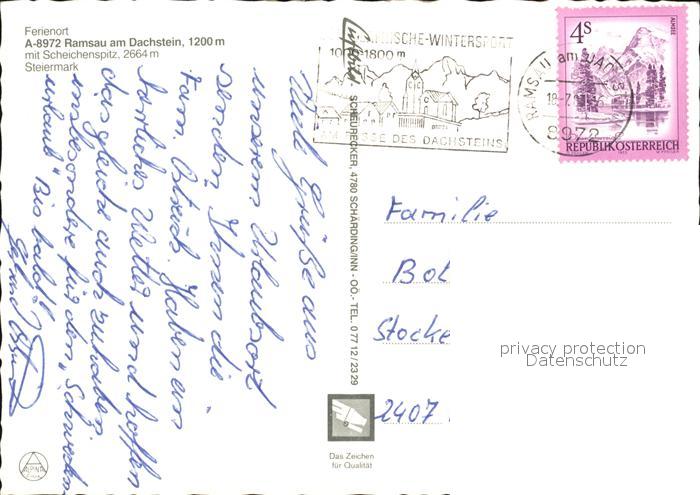 Ferienort
A-8972 Ramsau am Dachstein, 1200 m
mit Scheichenspitz, 2664 m
Steiermark
Viele Grüße aus
unserem Urlaubsort
senden Ihnen die
Fam. Haben ein
herrliches Wetter und hoffen
das gleiche auch zuhause,
insbesondere für den
urlaub" Bis bald!
SCHEURECKER, 4780 SCHÄRDING/INN - OÖ.- TEL. 0 77 12 / 23 29
-WINTERSPORT
1000-1800 m
AM FUSSE DES DACHSTEINS
RAMSAU am DACHST
8972
4S
ALMSEE
REPUBLIK ÖSTERREICH
Familie
Bot
Stocke
2407
privacy protection
Datenschutz
Das Zeichen
für Qualität
ALPINA